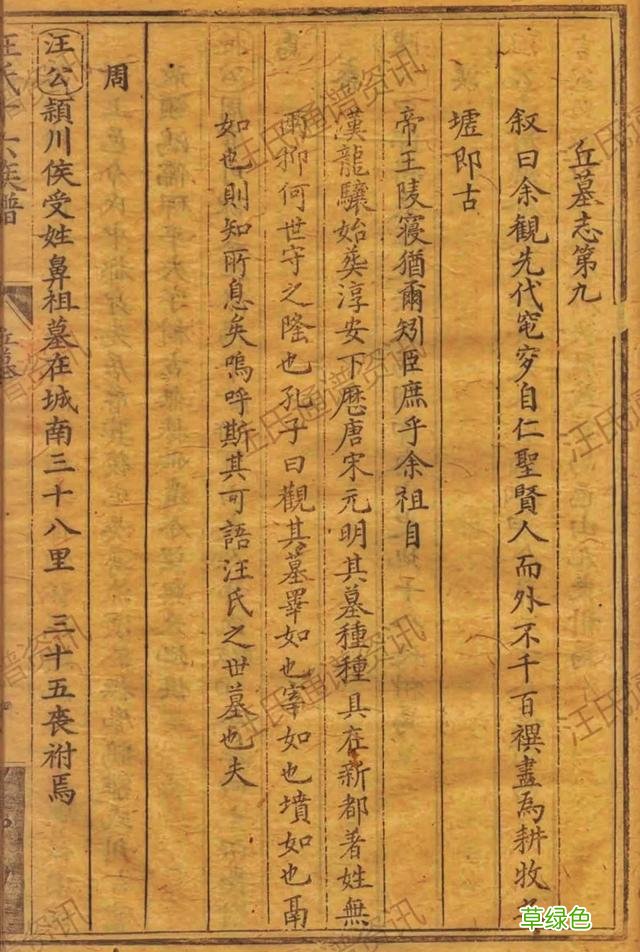 丘墓志第九
叙曰余觀先代窀穸自仁聖賢人而外不千百禩盡為耕牧
墟即古
帝王陵寢猶爾矧臣庶乎余祖自
漢龍驤始葬淳安下歷唐宋元明其墓種種具在新都著姓無
兩抑何世守之隆也孔子曰觀其墓睪如也宰如也墳如也鬲
如也則知所息矣嗚呼斯其可語汪氏之世墓也夫
周
汪公潁川侯受姓鼻祖墓在城南三十八里 三十五喪祔焉
汪氏十六族譜
丘墓
汪氏通譜资讯
草绿色